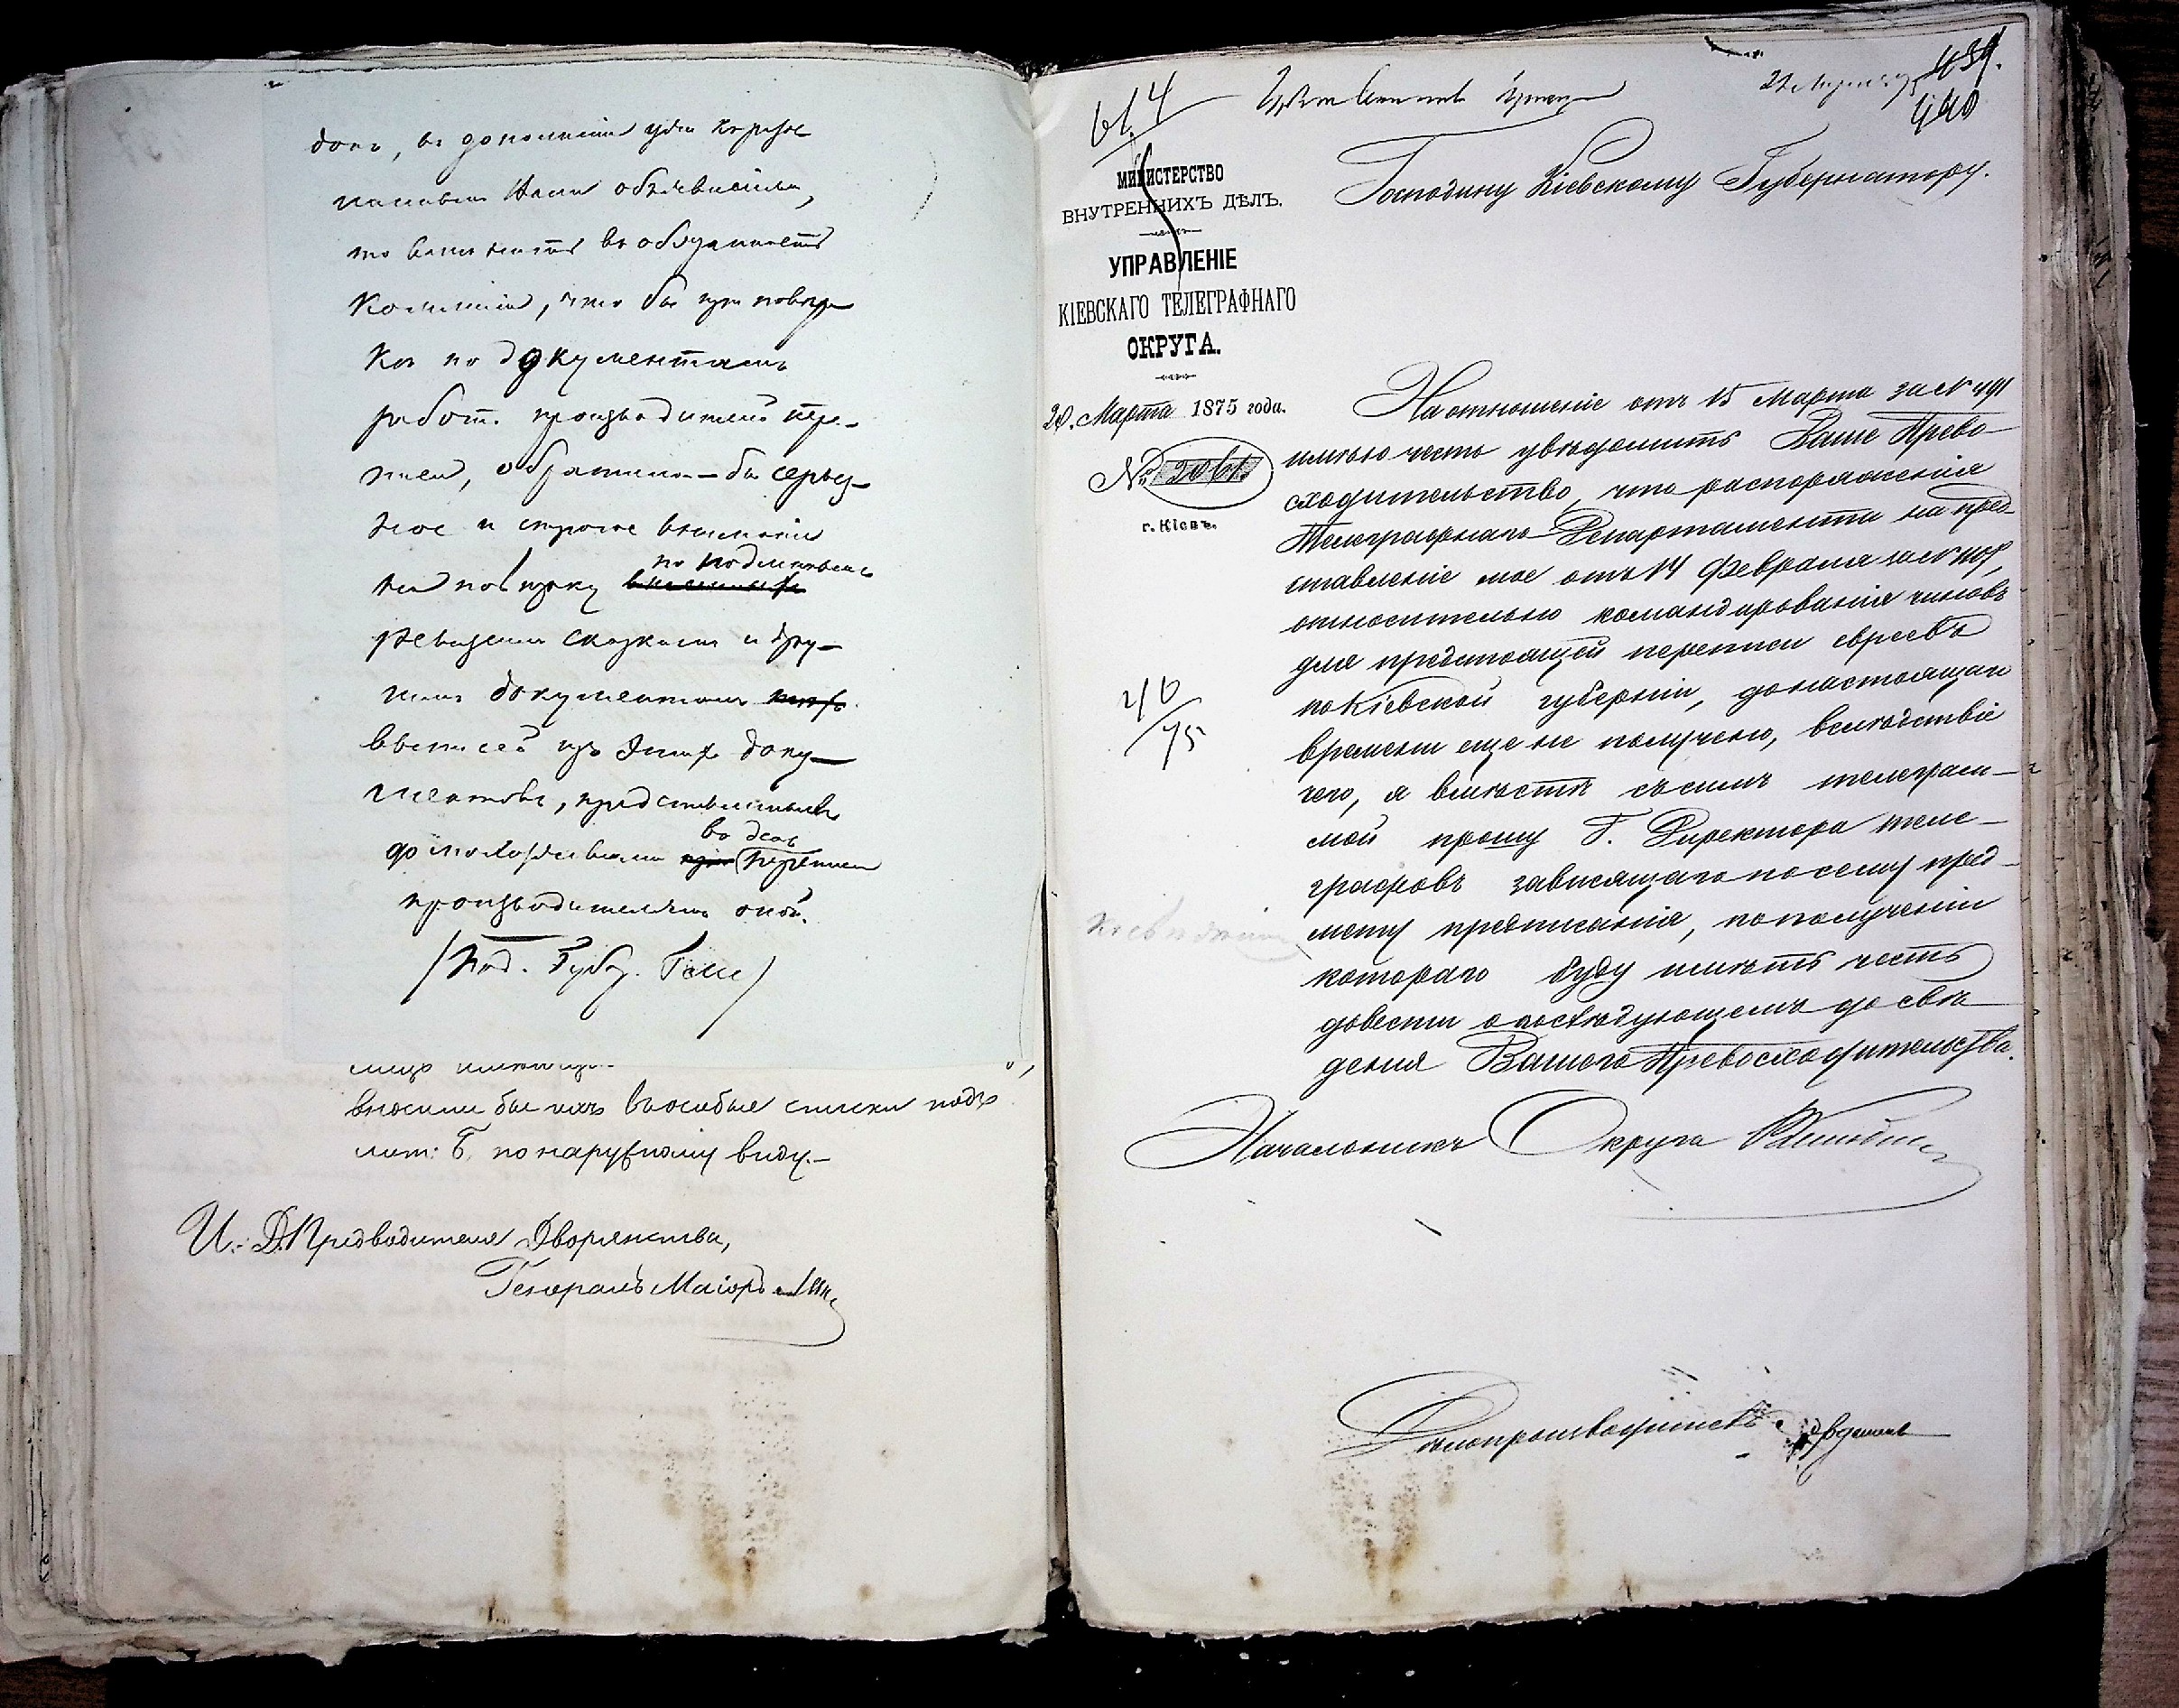 въ дополненіи
нами объявленія,
въ обязанность
Коммиссіи, что бы при повѣр
кѣ по документамъ
работ. производителей пере-
писи, обратила-бы серьез-
ное и строгое вниманіе
на повѣрку по подлиннымъ
ревизскимъ сказкамъ и дру-
гимъ документамъ
выписей изъ этихъ доку-
ментовъ, представленныхъ
домохозяевами въ день переписи
производителямъ оной.
(Под. Губер. Гессе)
вносили бы ихъ въ особые списки подъ
лит: Б. по наружному виду.-
И. Д. Предводителя Дворянства,
Генералъ Маіоръ
439.
440
614
МИНИСТЕРСТВО
ВНУТРЕННИХЪ ДѢЛЪ.
УПРАВЛЕНІЕ
КІЕВСКАГО ТЕЛЕГРАФНАГО
ОКРУГА.
20. Марта 1875 года.
№ 2061.
г. Кіевъ.
40/75
Господину Кіевскому Губернатору.
На отношеніе отъ 15 Марта за № 491
имѣю честь увѣдомить Ваше Прево-
сходительство, что распоряженія
Телеграфнаго Департамента на пред-
ставленіе мое отъ 14 Февраля за №
относительно командированія чиновъ
для предстоящей переписи евреевъ
по Кіевской губерніи, до настоящаго
времени еще не получено, вслѣдствіе
чего, я вмѣстѣ съ симъ телеграм-
мой прошу Г. Директора теле-
графовъ зависящаго по сему пред-
мету предписанія, по полученіи
котораго буду имѣть честь
довести о послѣдующемъ до свѣ-
денія Вашего Превосходительства.
Начальникъ Округа
Дѣлопроизводитель